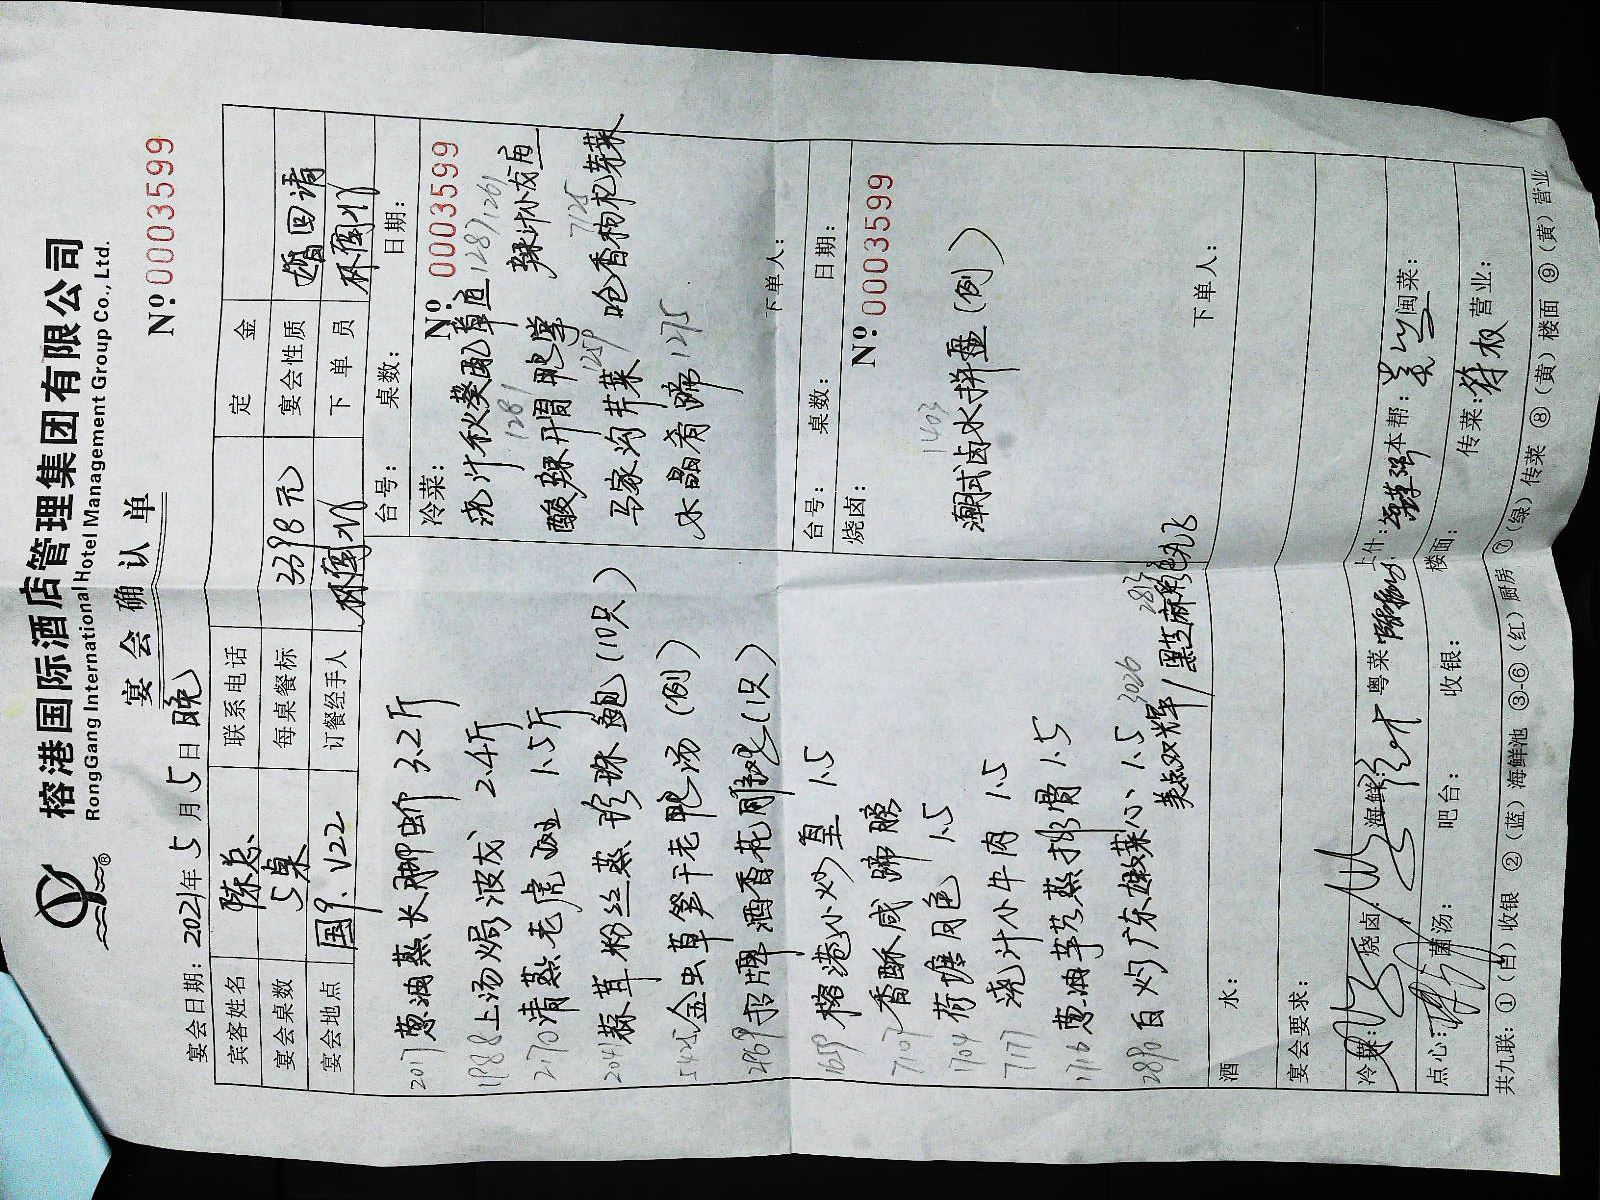 榕港国际酒店管理集团有限公司
RongGang International Hotel Management Group Co., Ltd.
宴会确认单
宴会日期：2021年5月5日晚
№:0003599
宾客姓名 陈总 联系电话 定金
宴会桌数 5桌 每桌餐标 3398元 宴会性质 婚回请
宴会地点 国9. V22 订餐经手人 林国 下单员 林国
2017 葱油蒸长脚蟹 3.2斤
1988 上汤焗波龙 2.4斤
2170 清蒸老虎斑 1.5斤
2041 蒜茸粉丝蒸珍珠鲍（10只）
金虫草笋干老鸭汤（例）
2969 招牌酒香花雕鸡（1只）
1659 榕港小炒皇 1.5
7107 香酥咸蹄膀
1704 荷塘月色 1.5
7171 浇汁小牛肉 1.5
1716 葱油芋艿蒸排骨 1.5
2890 白灼广东菜心 1.5
3026 2873
美点双辉/黑芝麻
台号： 桌数： 日期：
冷菜： №:0003599
浇汁秋葵配 1287 1261
1281
酸辣开胃 辣汁小
1259 7125
马家沟芹菜 呛香枸杞芽菜
水晶肴蹄 1275
下单人：
台号： 桌数： 日期：
烧卤： №:0003599
1403
潮式卤水拼盘（例）
下单人：
酒水：
宴会要求：
冷菜： 烧卤： 海鲜： 粤菜 上什： 本帮： 闽菜：
点心： 蘭汤： 吧台： 收银： 楼面： 传菜： 营业：
共九联：①（白）收银 ②（蓝）海鲜池 ③-⑥（红）厨房 ⑦（绿）传菜 ⑧（黄）楼面 ⑨（黄）营业